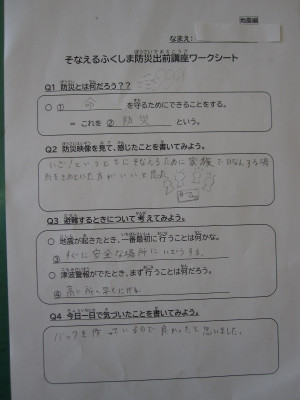 地震編
なまえ：
そなえるふくしま防災出前講座ワークシート
Q1 防災とは何だろう？？
○ ① 命 を守るためにできることをする。
＝ これを ② 防災 という。
Q2 防災映像を見て、感じたことを書いてみよう。
いざ！というときにそなえるために家族で
場所をきめといた方がいいと思った
Q3 避難するときについて考えてみよう。
○ 地震が起きたとき、一番最初に行うことは何かな。
③ すぐに安全な場所に
○ 津波警報がでたとき、まず行うことは何だろう。
④ 高い所へ
Q4 今日一日で気づいたことを書いてみよう。
バックを作っているので良かったと思いました。